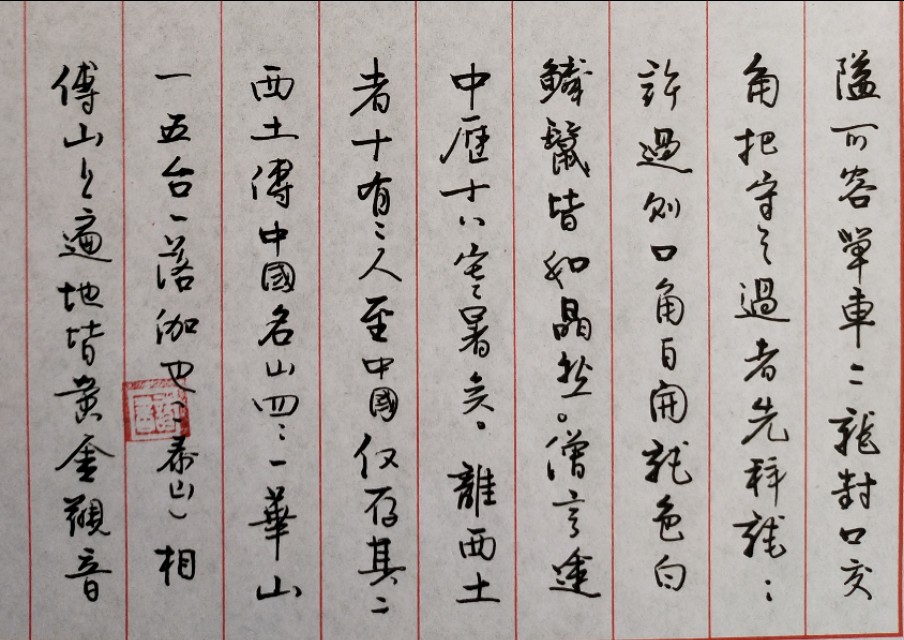 隘可容單車二龍對口交
角把守之過者先拜龍：
許過则口角自開龍色白
鱗鬣皆如晶然。僧言途
中歷十八寒暑矣。離西土
者十有二人至中國仅存其二
西土傳中國名山四：一華山
一五台一落伽也（泰山）相
傳山上遍地皆黄金觀音